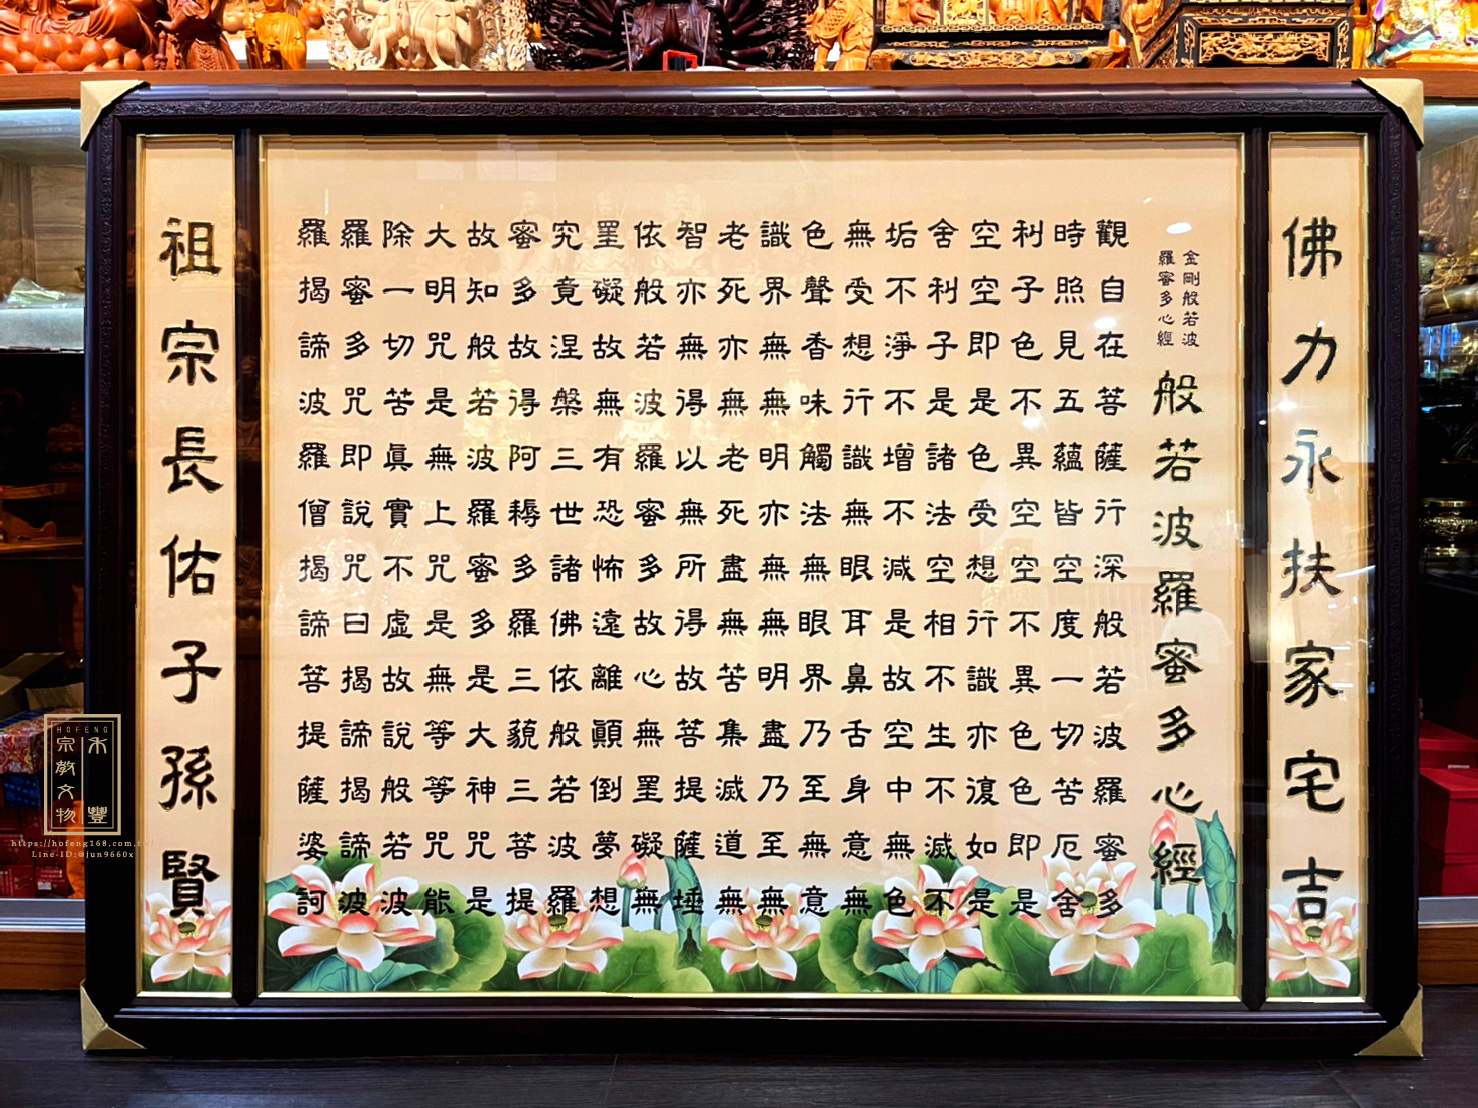 佛力永扶家宅吉
金剛般若波
羅蜜多心經
般若波羅蜜多心經
觀自在菩薩行深般若波羅蜜多
時照見五蘊皆空度一切苦厄舍
利子色不異空空不異色色即是
空空即是色受想行識亦復如是
舍利子是諸法空相不生不滅不
垢不淨不增不減是故空中無色
無受想行識無眼耳鼻舌身意無
色聲香味觸法無眼界乃至無意
識界無無明亦無無明盡乃至無
老死亦無老死盡無苦集滅道無
智亦無得以無所得故菩提薩埵
依般若波羅蜜多故心無罣礙無
罣礙故無有恐怖遠離顛倒夢想
究竟涅槃三世諸佛依般若波羅
蜜多故得阿耨多羅三藐三菩提
故知般若波羅蜜多是大神咒是
大明咒是無上咒是無等等咒能
除一切苦眞實不虛故說般若波
羅蜜多咒即說咒曰揭諦揭諦波
羅揭諦波羅僧揭諦菩提薩婆訶
祖宗長佑子孫賢
HOFENG
禾豐
宗教文物
https://hofeng168.com.tw
Line-ID:@jun9660x